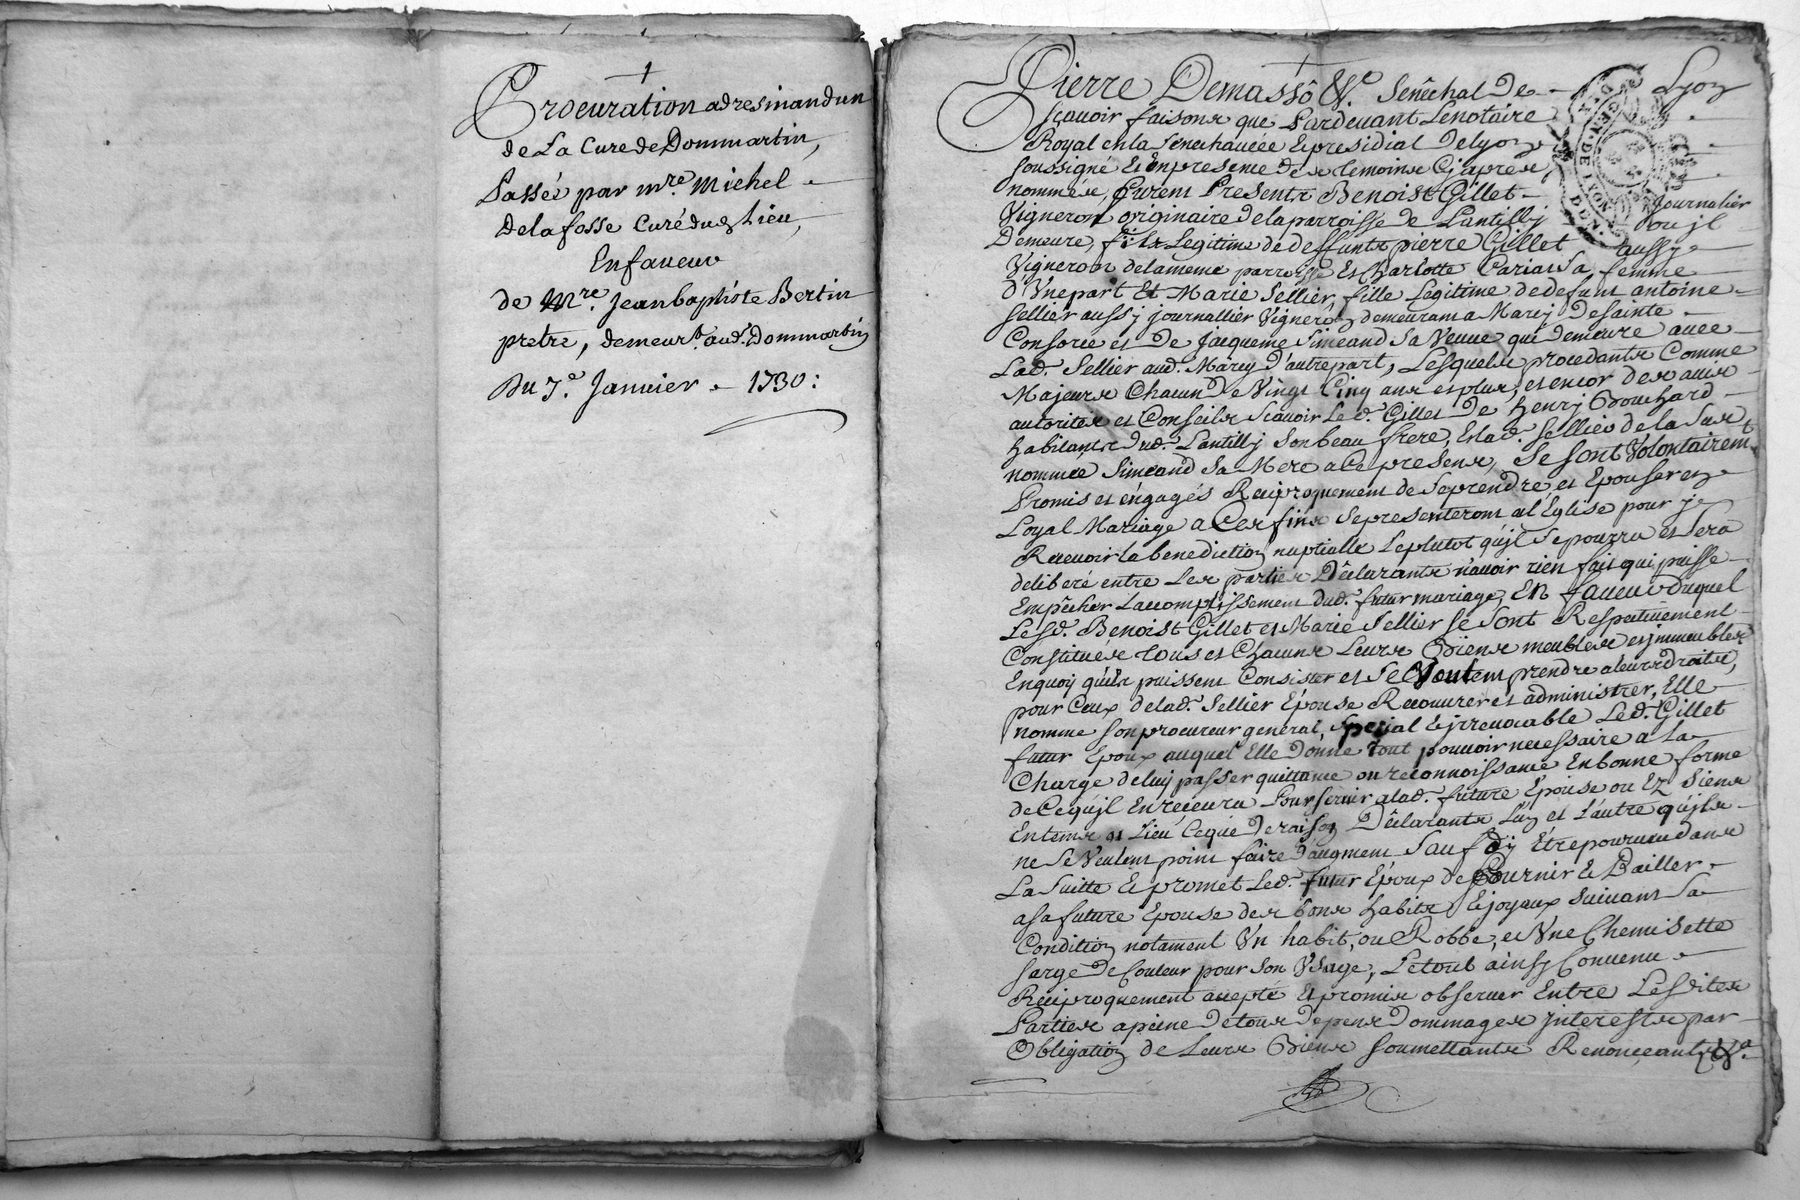 Procuration adresinandun
de La Cure de Dommartin,
Passée par mre. michel
Delafosse Curé dud. Lieu,
Enfaueur
de Mre. Jean baptiste Bertin
pretre, demeurt. aud. Dommartin
Du 7e. Januier 1730:
Pierre Demasso &c. Senêchal De Lyon
sçauoir faisons que Pardeuant Lenotaire
Royal en la Senechaucée & presidial Delyon
soussigné & Enpresence des temoins Cjapres
nommés, furent Presents Benoist Gillet journalier
Vigneron originaire delaparroisse de Lantilly ou jl
Demeure, fils Legitime de deffunts pierre Gillet aussy
Vigneron delameme parroisse et Charlotte femme
d'Unepart Et Marie Sellier, fille Legitime dedefunt antoine
Sellier aussy journallier Vigneron demeurant a Marcy De sainte
Consorce et De jacqueme Simeand Sa Veuue qui demeure auec
Lad. Sellier aud. Marcy D'autrepart, Lesquels procedants Comme
Majeurs Chacun De Vingt Cinq ans et plus, et encor des auis
autorites et Conseils sçauoir Le d. Gillet De henry Bouchard
habitants dud. Lantilly Son beau frere, Et lad. Sellier de la Sus
nommée Simeand Sa Mere a Ce presens, Se sont Volontairemt.
Promis et engagés Reciproquement de Seprendre et Epouser en
Loyal Mariage a Ces fins Sepresenteront al'Eglise pour y
Receuoir la benediction nuptialle Leplutot qu'jl Sepourra et Sera
deliberé entre Les parties Declarants n'auoir rien fait qui puisse
Empêcher Laccomplissement dud. futur mariage, EN faueur Duquel
Lesd. Benoist Gillet et Marie Sellier se Sont Respectiuement
Constitués tous et Chacuns Leurs Biens meubles et jmmeubles
Enquoy quils puissent Consister et Se Veulent prendre aleurs droits,
pour Ceux delad. Sellier Epouse Recouurer et administrer, Elle
nomme son procureur general, Special & jrreuocable Led. Gillet
futur Epoux auquel Elle Donne tout pouuoir necessaire a La
Charge de luy passer quittance ou reconnoissance Enbonne forme
de Cequ'jl Enreceura Pour Seruir alad. future Epouse ou Ez Siens
Entems et Lieu Ceque Deraison Declarants L'un et L'autre qu'jls
ne Se Veulent point faire D'augment Sauf D'y Etrepourueu dans
La Suitte & promet Led. futur Epoux de Fournir & Bailler
asa future Epouse des bons habits & joyaux suiuant Sa
Condition notament Un habit, ou Robbe, et Une Chemisette
sarge De Couleur pour Son Usage, Letout ainsy Conuenu
Reciproquement accepté & promis obseruer Entre Lesdites
Parties apeine Detous Depens Dommages jnterests par
Obligation de Leurs Biens soumettants Renonceants &a.